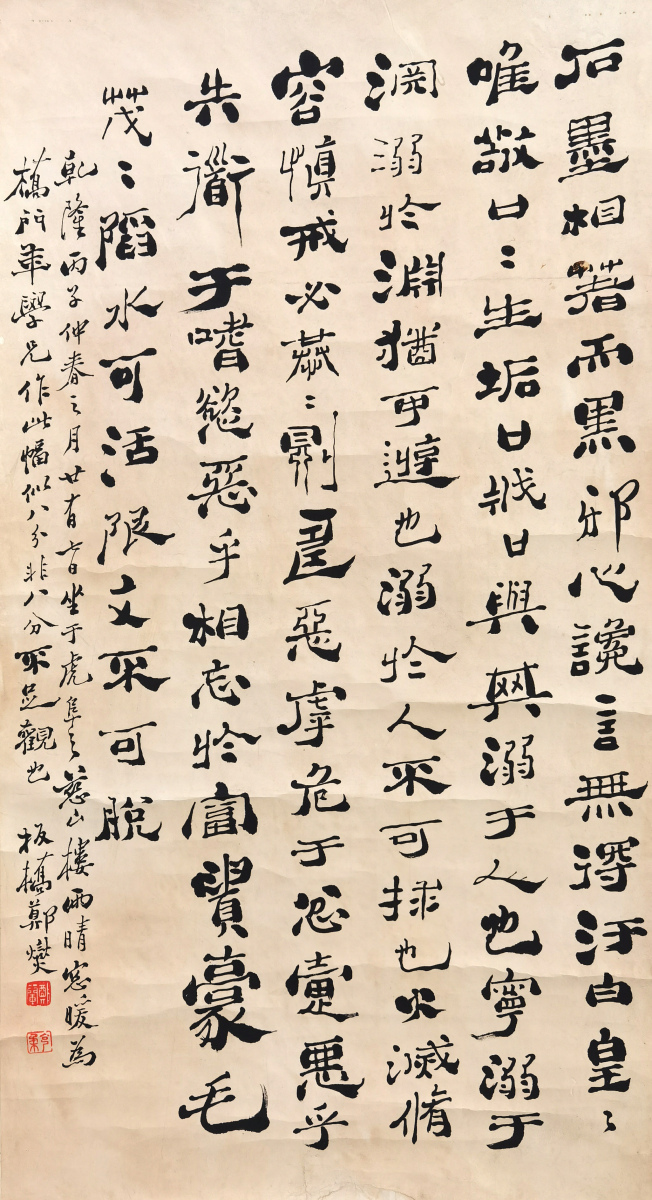 石墨相著而黑邪心讒言無得汙白皇〻
唯敬口〻生垢口戕口與其溺于人也寧溺于
淵溺於淵猶可遊也溺於人不可救也火滅脩
容慎戒必恭〻則壽惡虖危于忿疐惡乎
失道于嗜慾惡乎相忘於富貴豪毛
茂〻陷水可活限文不可脫
乾隆丙子仲春之月廿有一日坐于虎阜之慈山樓雨晴窓暖為
橋門年學兄作此幅似八分非八分不足觀也 板橋鄭燮